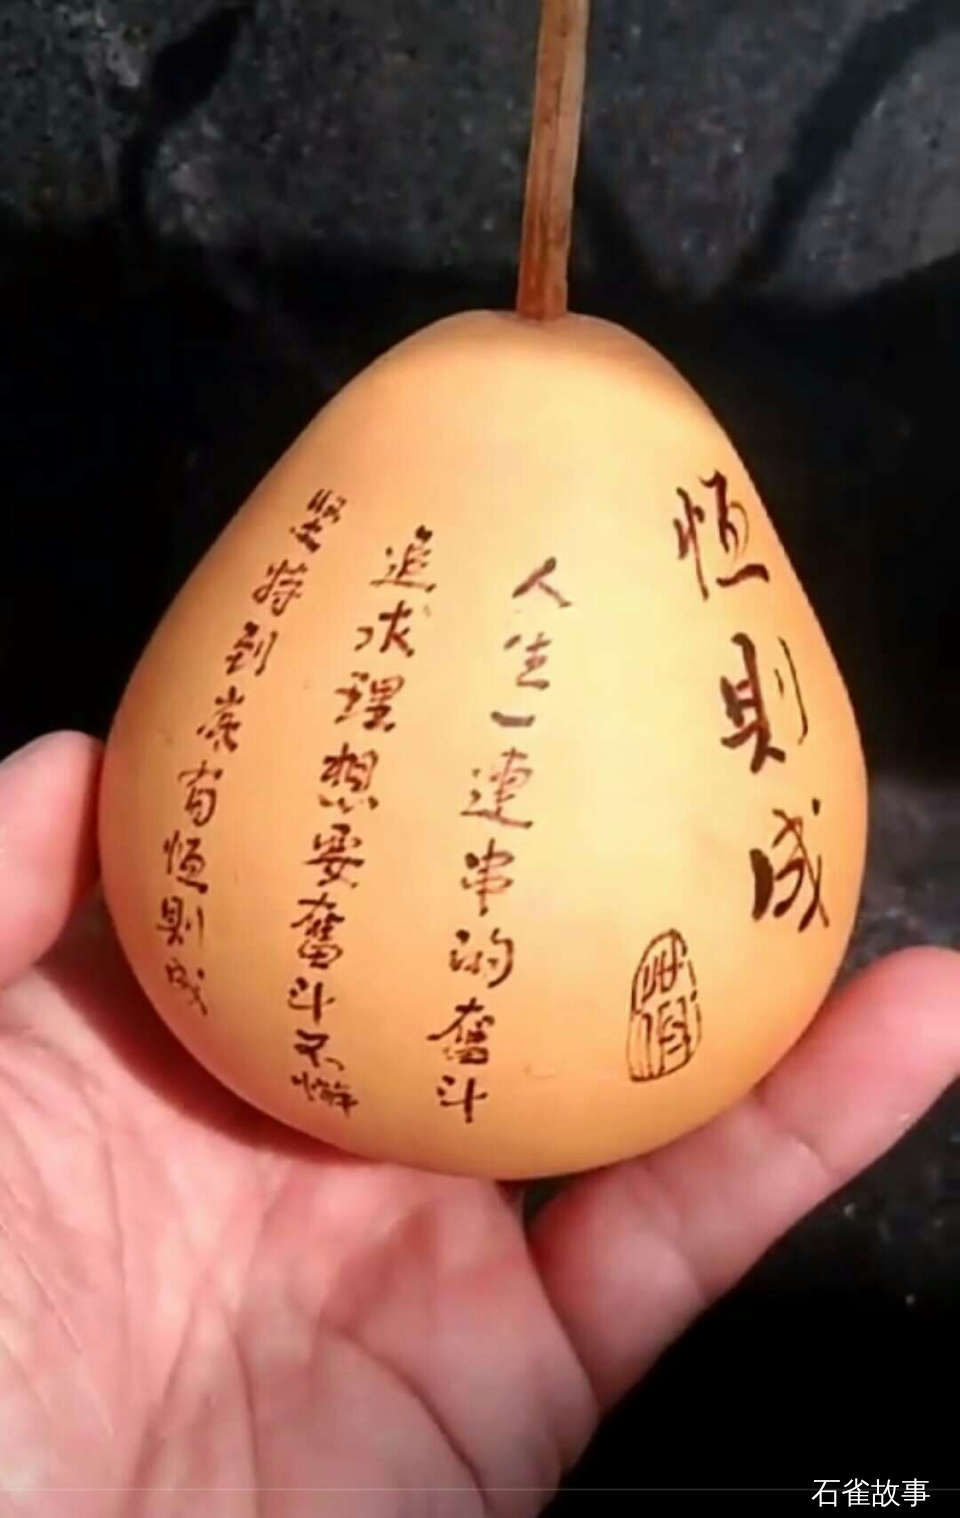 恒則成
人生一連串的奮斗
追求理想要奮斗不懈
堅持到底有恒則成
石雀故事